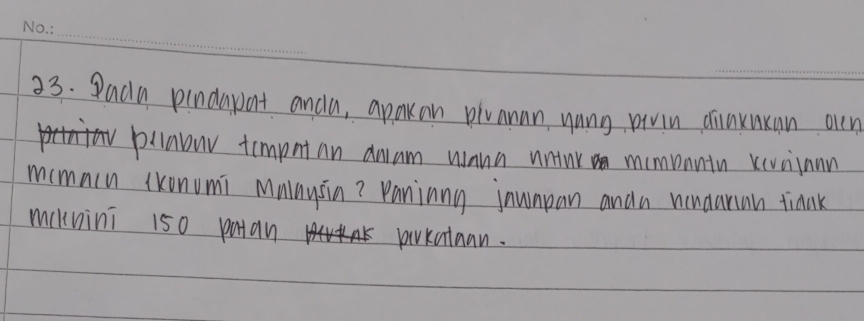 No.:
23. Pada pendapat anda, apakah peranan yang perlu dilakukan oleh
pelabur tempatan dalam usaha untuk membantu kerajaan
memacu ekonomi Malaysia? Panjang jawapan anda hendaklah tidak
melebihi 150 patah perkataan.